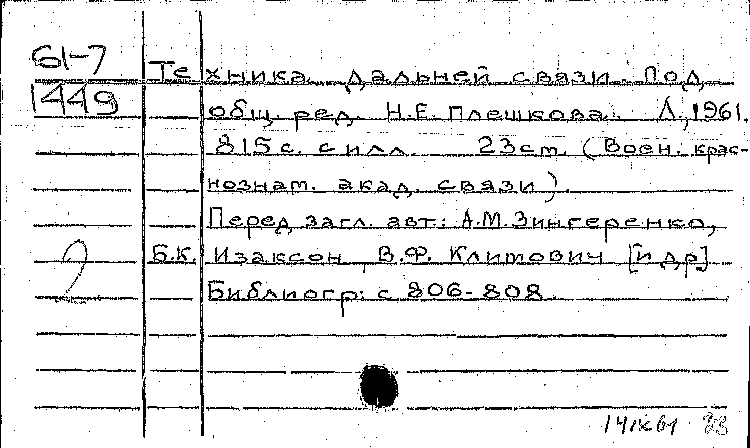 61-7
1449
Техника дальней связи. Под
общ. ред. Н.Е. Плешкова. Л., 1961.
815 с. с илл. 23 см. (Воен. крас-
нознам. акад. связи).
Перед загл. авт: А.М. Зингеренко,
Б.К. Изаксон, В.Ф. Климович [и др]
Библиогр: с 806-808.
2